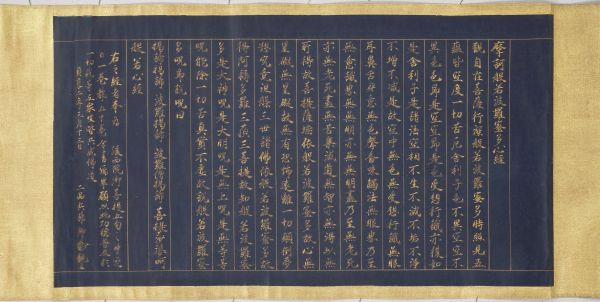 摩訶般若波羅蜜多心經
觀自在菩薩行深般若波羅蜜多時照見五
蘊皆空度一切苦厄舍利子色不異空空不
異色色即是空空即是色受想行識亦復如
是舍利子是諸法空相不生不滅不垢不淨
不增不減是故空中無色無受想行識無眼
耳鼻舌身意無色聲香味觸法無眼界乃至
無意識界無無明亦無無明盡乃至無老死
亦無老死盡無苦集滅道無智亦無得以無所
得故菩提薩埵依般若波羅蜜多故心無
罣礙無罣礙故無有恐怖遠離一切顛倒夢
想究竟涅槃三世諸佛依般若波羅蜜多故
得阿耨多羅三藐三菩提故知般若波羅蜜
多是大神呪是大明呪是無上呪是無等等
呪能除一切苦真實不虛故說般若波羅蜜
多呪即說呪曰
揭諦揭諦 波羅揭諦 波羅僧揭諦 菩提莎婆呵
般若心經
右之經者奉為 後西院御菩提